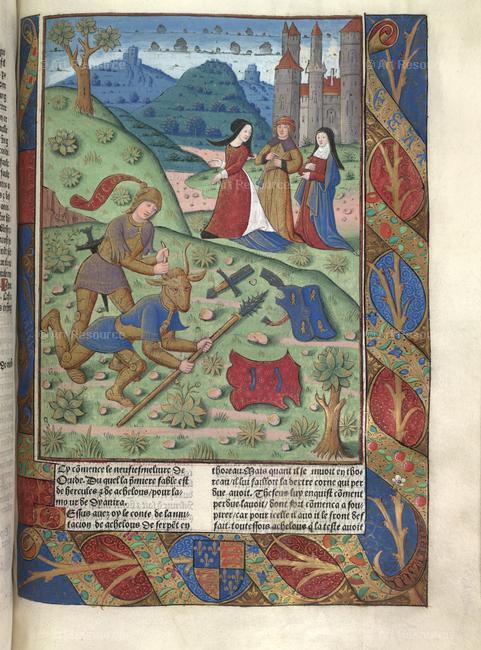 © Art Resource
Cy cōmence le neufiesme livre de
Ouide. Du quel la p̄miere fable est
de hercules ⁊ de achelous/pour la/
mour de dyanira.
Essus auez oy le conte de la mu
tacion de achelous de serpēt en
thoreau. Mais quant il se muoit en tho
reau/il lui failloit la dextre corne qui per
due auoit. Theseus luy enquist cōment
perdue lauoit/ dont fort cōmenca a sou/
spirer/car pour icelle il auoit le front def
fait. toutesfois achelous q̄ la teste auoit